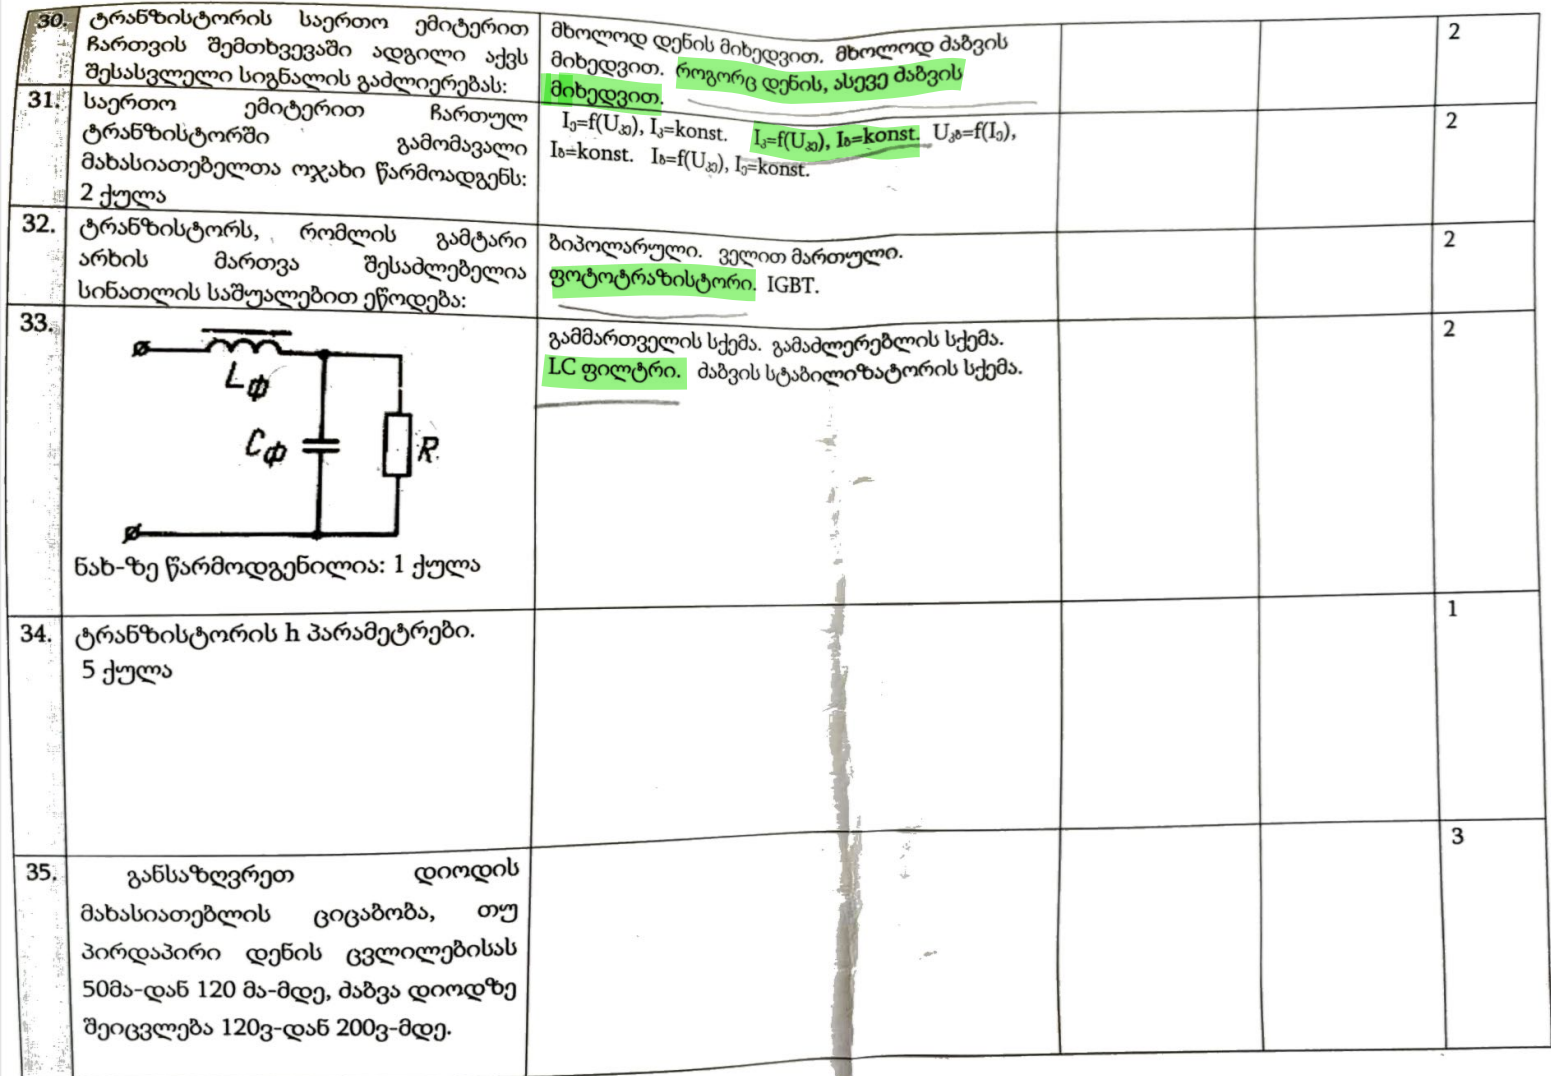 30. ტრანზისტორის საერთო ემიტერით
ჩართვის შემთხვევაში ადგილი აქვს
შესასვლელი სიგნალის გაძლიერებას:
მხოლოდ დენის მიხედვით. მხოლოდ ძაბვის
მიხედვით. როგორც დენის, ასევე ძაბვის
მიხედვით.
2
31. საერთო ემიტერით ჩართულ
ტრანზისტორში გამომავალი
მახასიათებელთა ოჯახი წარმოადგენს:
2 ქულა
Iე=f(Uკე), Iკ=konst. Iკ=f(Uკე), Iბ=konst. Uკბ=f(Iე),
Iბ=konst. Iბ=f(Uკე), Iე=konst.
2
32. ტრანზისტორს, რომლის გამტარი
არხის მართვა შესაძლებელია
სინათლის საშუალებით ეწოდება:
ბიპოლარული. ველით მართული.
ფოტოტრაზისტორი. IGBT.
2
33.
Lф
Cф
R
ნახ-ზე წარმოდგენილია: 1 ქულა
გამმართველის სქემა. გამაძლერებლის სქემა.
LC ფილტრი. ძაბვის სტაბილიზატორის სქემა.
2
34. ტრანზისტორის h პარამეტრები.
5 ქულა
1
35. განსაზღვრეთ დიოდის
მახასიათებლის ციცაბობა, თუ
პირდაპირი დენის ცვლილებისას
50მა-დან 120 მა-მდე, ძაბვა დიოდზე
შეიცვლება 120ვ-დან 200ვ-მდე.
3